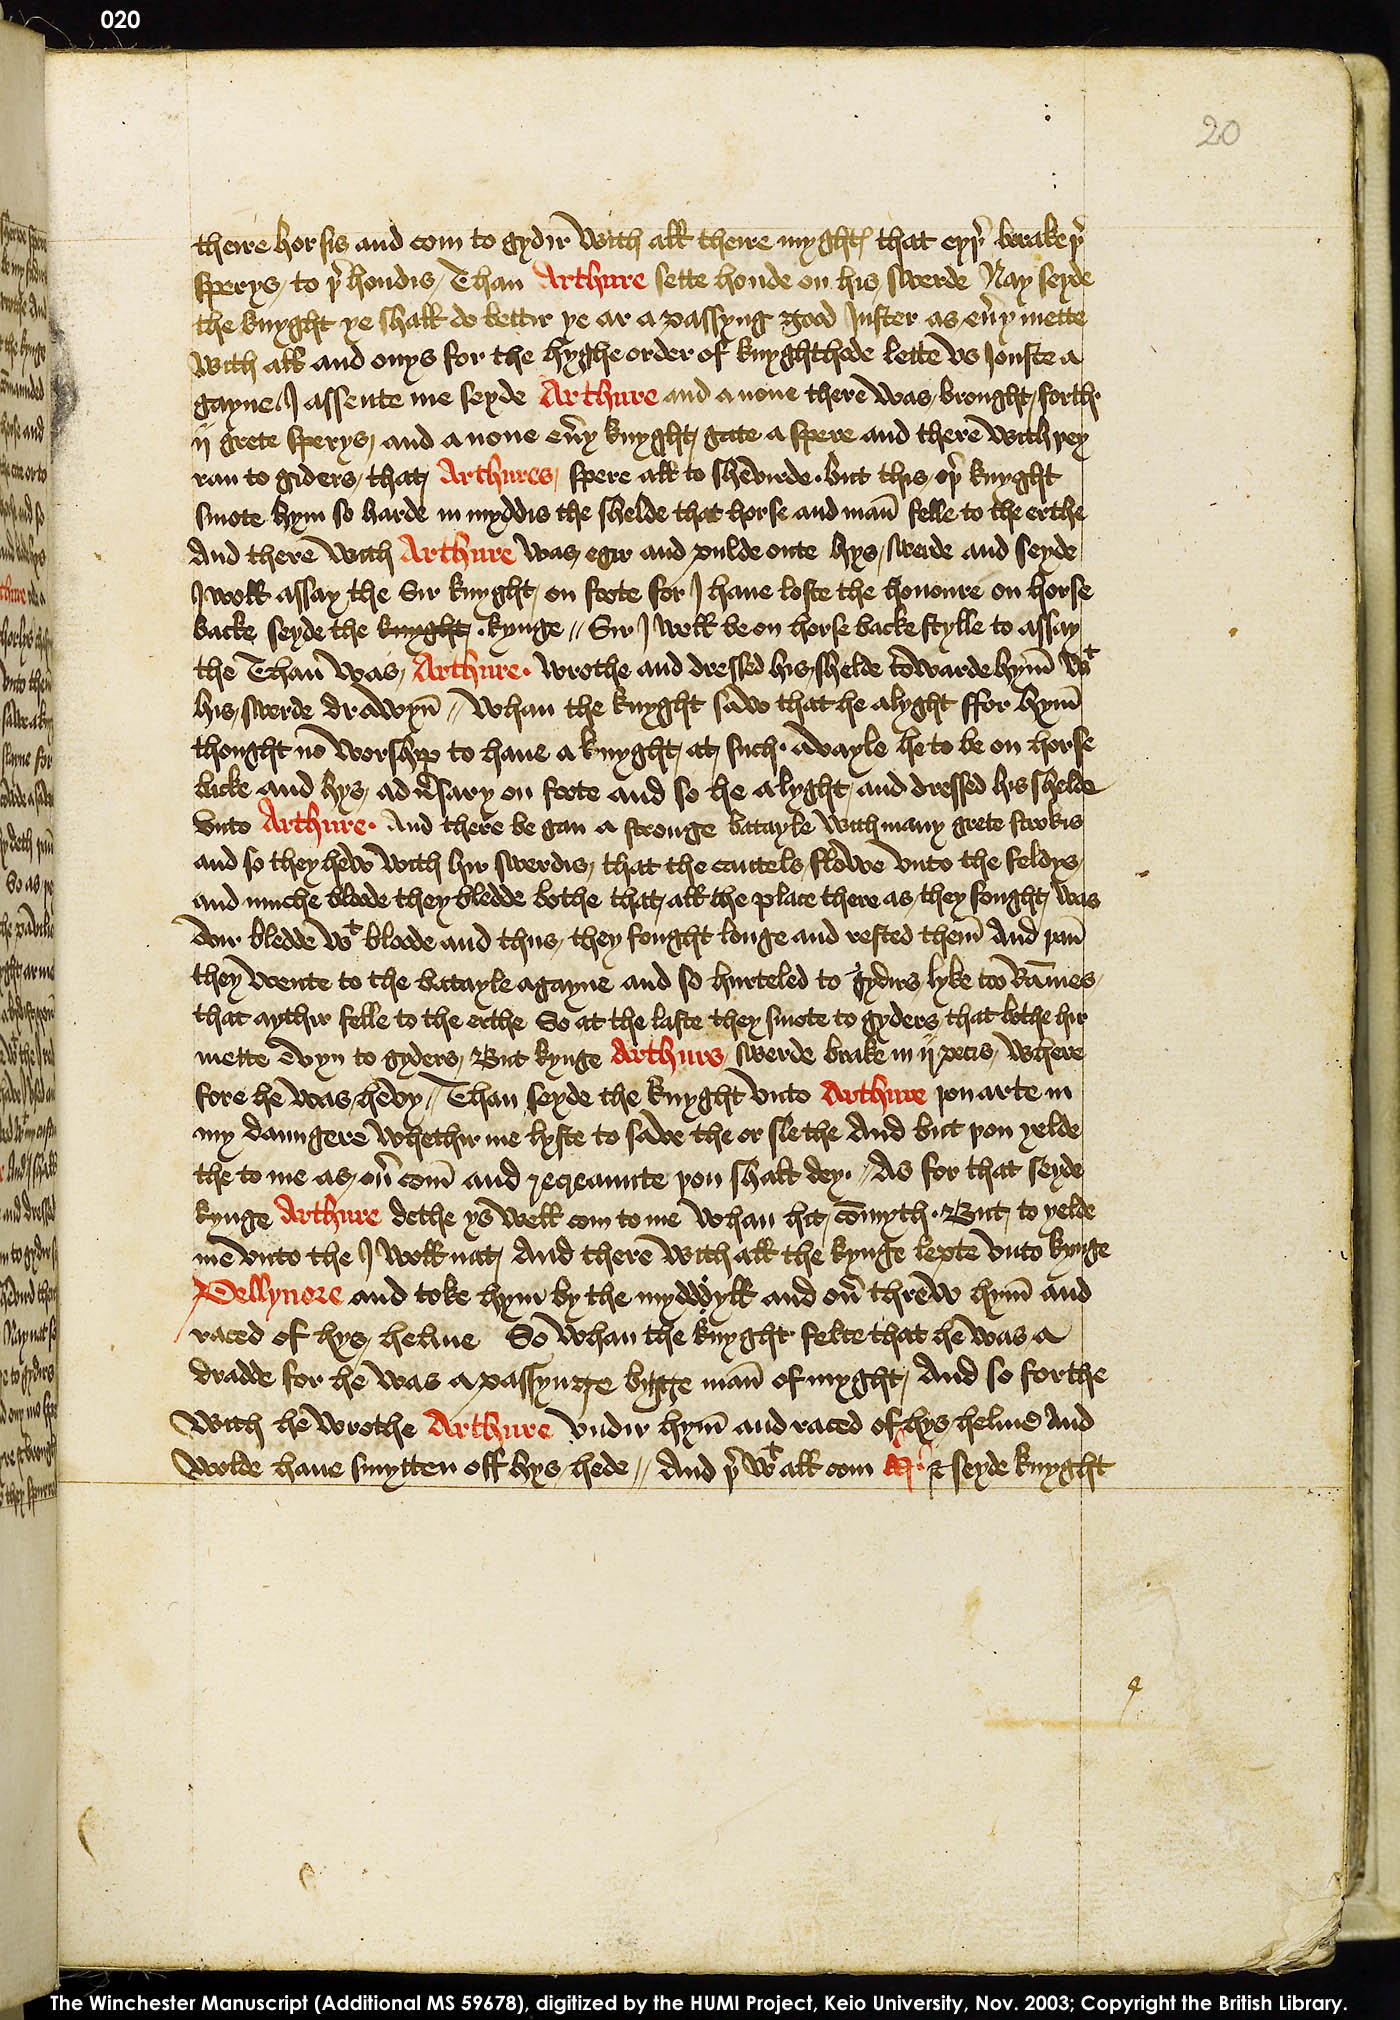 020
20
theire horsis and com to gydir with all theire myghtes that eyþer brake þer
sperys to þer hondis Than Arthure sette honde on his swerde Nay seyde
the knyght ye shall do bettir ye ar a passyng good Juster as euer y mette
with all and onys for the hyghe order of knyghthode lette vs Jouste a
gayne I assente me seyde Arthure and a none there was brought forth
ij grete sperys and a none euery knyght gate a spere and there with þey
ran to giders that Arthures spere all to shevirde . but this oþer knyght
smote hym so harde in myddis the shelde that horse and man felle to the erthe
And there with Arthure was egir and pulde oute hys swerde and seyde
I woll assay the Sir knyght on foote for I haue loste the honoure on horse
backe seyde the knyght . kynge // Sir I woll be on horse backe stylle to assay
the Than was Arthure . wrothe and dressed his shelde towarde hym wt
his swerde drawyn // whan the knyght saw that he alyght ffor hym
thought no worshyp to haue a knyght at such . avayle he to be on horse
backe and hys aduersary on foote and so he alyght and dressed his shelde
vnto Arthure . And there be gan a stronge batayle with many grete strokis
and so they hew with hir swerdis that the cantels flowe vnto the feldys
and muche bloode they bledde bothe that all the place there as they fought was
ovir bledde wt bloode and thus they fought longe and rested them And þan
they wente to the batayle agayne and so hurteled to gydirs lyke too Rammes
that aythir felle to the erthe So at the laste they smote to gyders that bothe hir
mette evyn to gyders But kynge Arthurs swerde brake in ij pecis where
fore he was hevy // Than seyde the knyght vnto Arthure þou arte in
my daungere whethir me lyste to save the or sle the And but þou yelde
the to me as ouer com and recreaunte þou shalt dey . // As for that seyde
kynge Arthure dethe ys well com to me whan hit commyth . But to yelde
me vnto the I woll nat And there with all the kynge lepte vnto kynge
Pellynore and toke hym by the myddyll and ouer threw hym and
raced of hys helme So whan the knyght felte that he was a
dradde for he was a passynge bigge man of myght And so forthe
with he wrothe Arthure vndir hym and raced of hys helme And
wolde haue smytten off hys hede // And þer wt all com M . & seyde knyght
The Winchester Manuscript (Additional MS 59678), digitized by the HUMI Project, Keio University, Nov. 2003; Copyright the British Library.